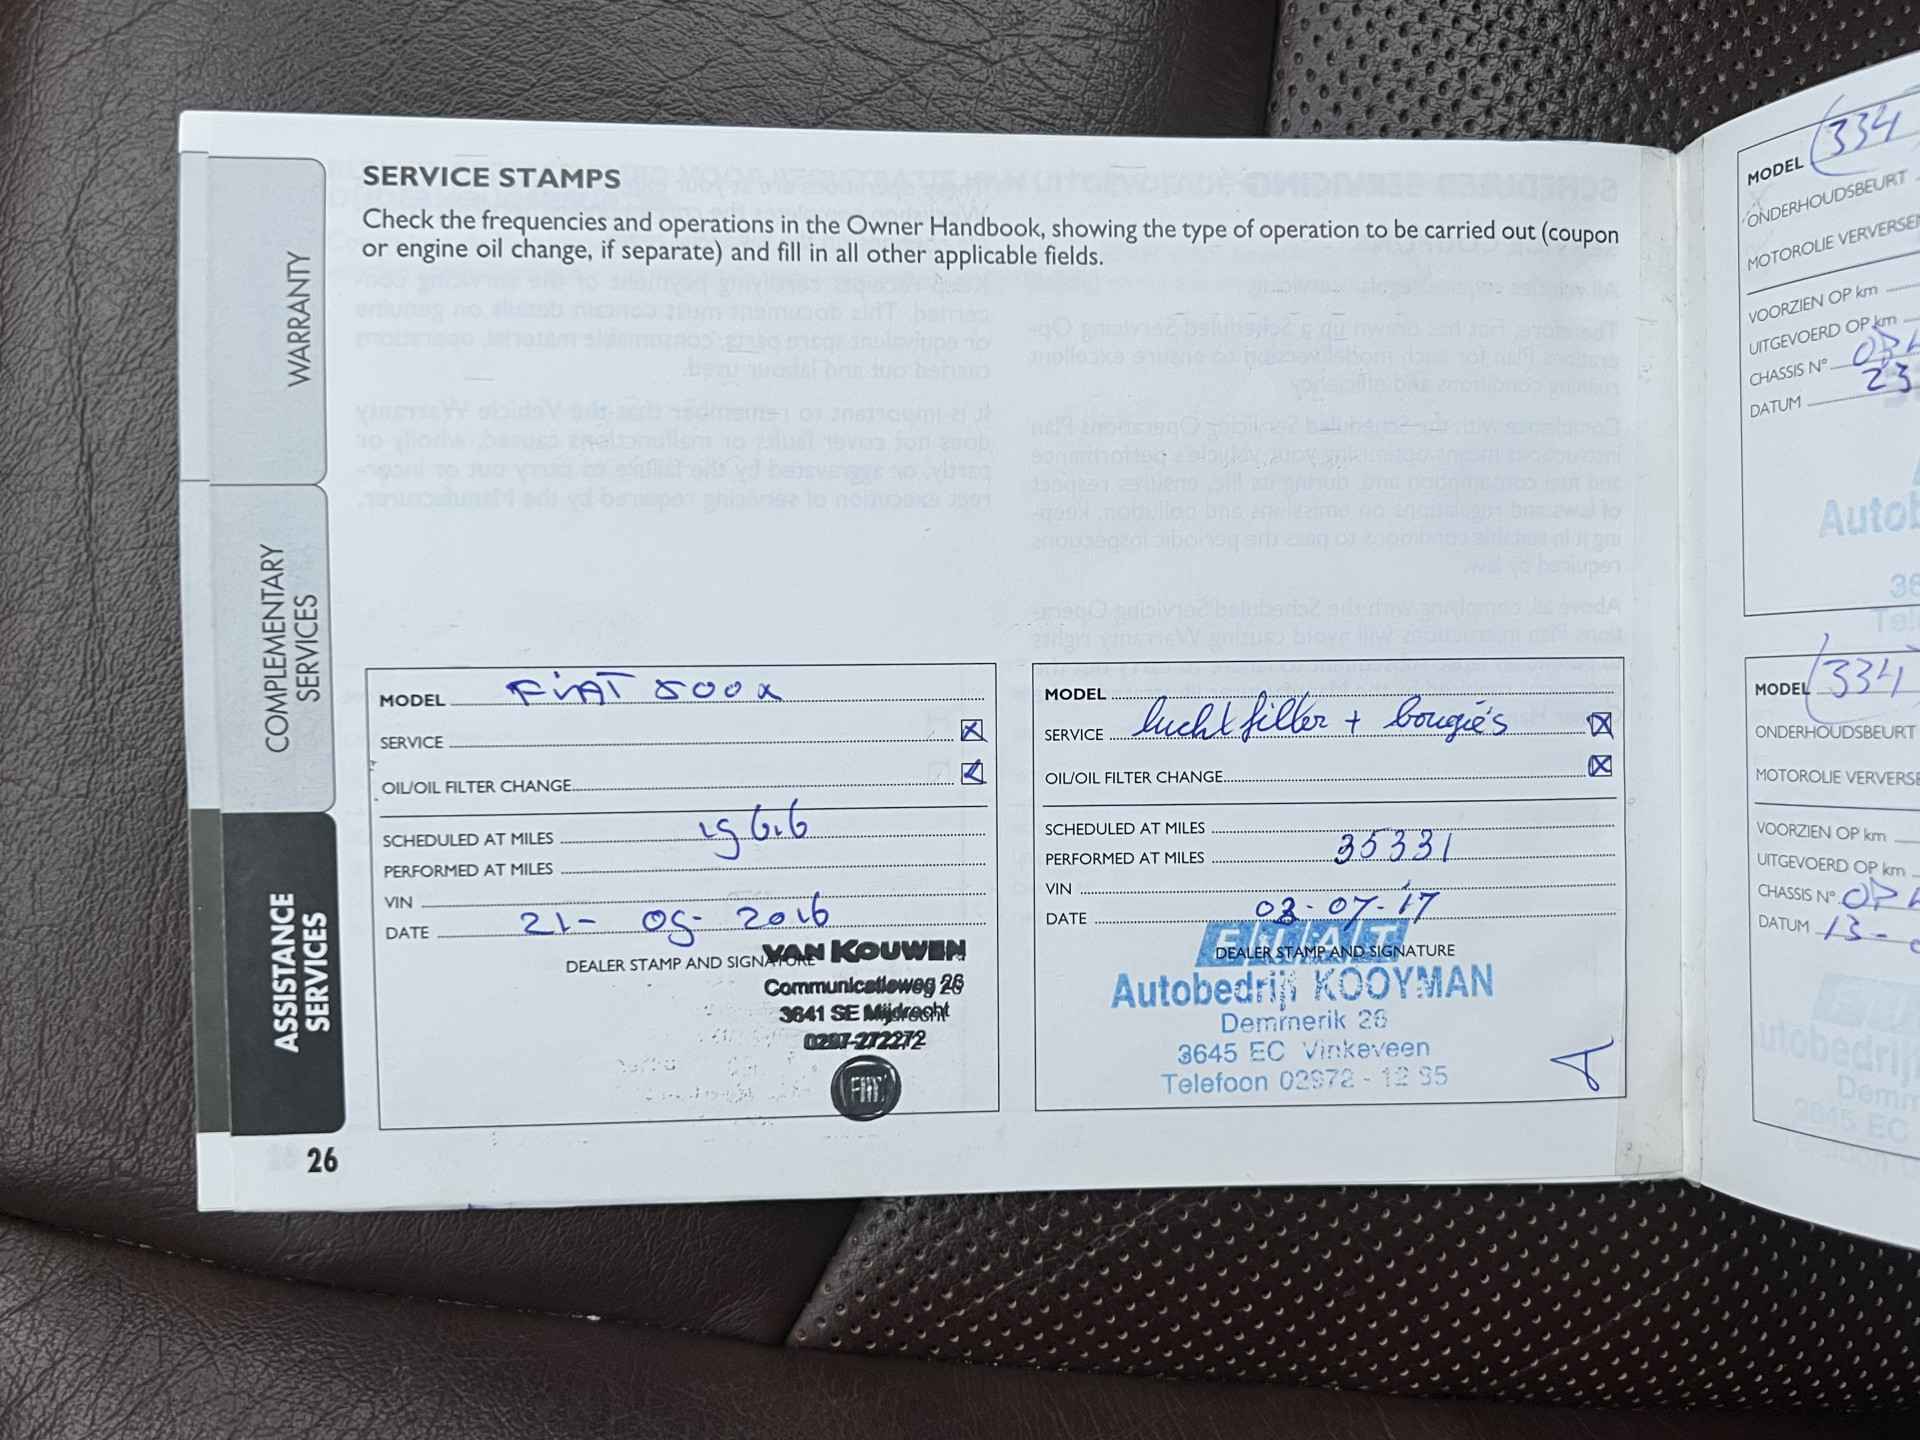 SERVICE STAMPS
Check the frequencies and operations in the Owner Handbook, showing the type of operation to be carried out (coupon
or engine oil change, if separate) and fill in all other applicable fields.
WARRANTY
COMPLEMENTARY
SERVICES
ASSISTANCE
SERVICES
MODEL FiAT 500x
SERVICE
OIL/OIL FILTER CHANGE
SCHEDULED AT MILES
PERFORMED AT MILES
VIN
DATE 21-09-2016
DEALER STAMP AND SIGNATURE
VAN KOUWEN
Communicatieweg 26
3641 SE Mijdrecht
0297-272272
FIAT
MODEL
SERVICE luchtfilter + bougie's
OIL/OIL FILTER CHANGE
SCHEDULED AT MILES
PERFORMED AT MILES 35331
VIN
DATE 03-07-17
DEALER STAMP AND SIGNATURE
FIAT
Autobedrijf KOOYMAN
Demmerik 26
3645 EC Vinkeveen
Telefoon 02972 - 12 95
26
MODEL 334
ONDERHOUDSBEURT
MOTOROLIE VERVERSE
VOORZIEN OP km
UITGEVOERD OP km
CHASSIS N°
DATUM 23
Autob
36
Tel
MODEL 334
ONDERHOUDSBEURT
MOTOROLIE VERVERSE
VOORZIEN OP km
UITGEVOERD OP km
CHASSIS N°
DATUM 13-
utobedrij
Demm
3645 EC